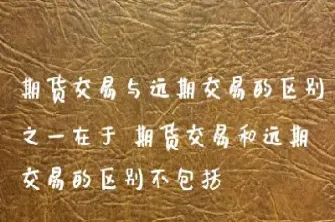 期货交易与远期交易的区别
之一在于 期货交易和远期
交易的区别不包括